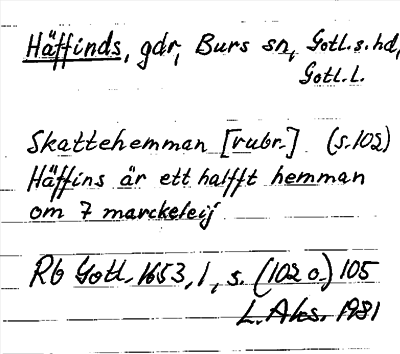 Häffinds, gdr, Burs sn, Gotl. s. hd,
Gotl. L.
Skattehemman [rubr.] (s. 102)
Häffins är ett halfft hemman
om 7 marckeleij
Rb Gotl. 1653, 1, s. (102 o.) 105
L. Aks. 1981